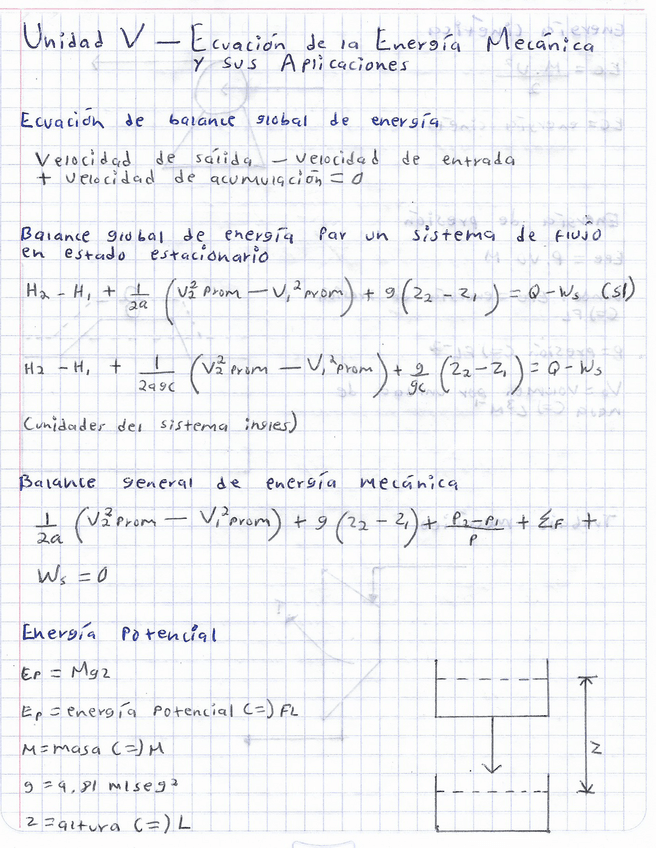 Unidad V — Ecuación de la Energía Mecánica
y sus Aplicaciones
Ecuación de balance global de energía
Velocidad de salida — velocidad de entrada
+ velocidad de acumulación = 0
Balance global de energía Par un sistema de Flujo
en estado estacionario
H₂ - H₁ + 1/2a (V₂² Prom — V₁² Prom) + g (z₂ - z₁) = Q - Ws (SI)
H₂ - H₁ + 1/2agc (V₂² Prom — V₁² Prom) + g/gc (z₂ - z₁) = Q - Ws
(unidades del sistema ingles)
Balance general de energía mecánica
1/2a (V₂² Prom — V₁² Prom) + g (z₂ - z₁) + P₂-P₁/P + ΣF +
Ws = 0
Energía Potencial
EP = Mgz
EP = energía Potencial (=) FL
M = masa (=) M
g = 9,81 m/seg²
z = altura (=) L
z